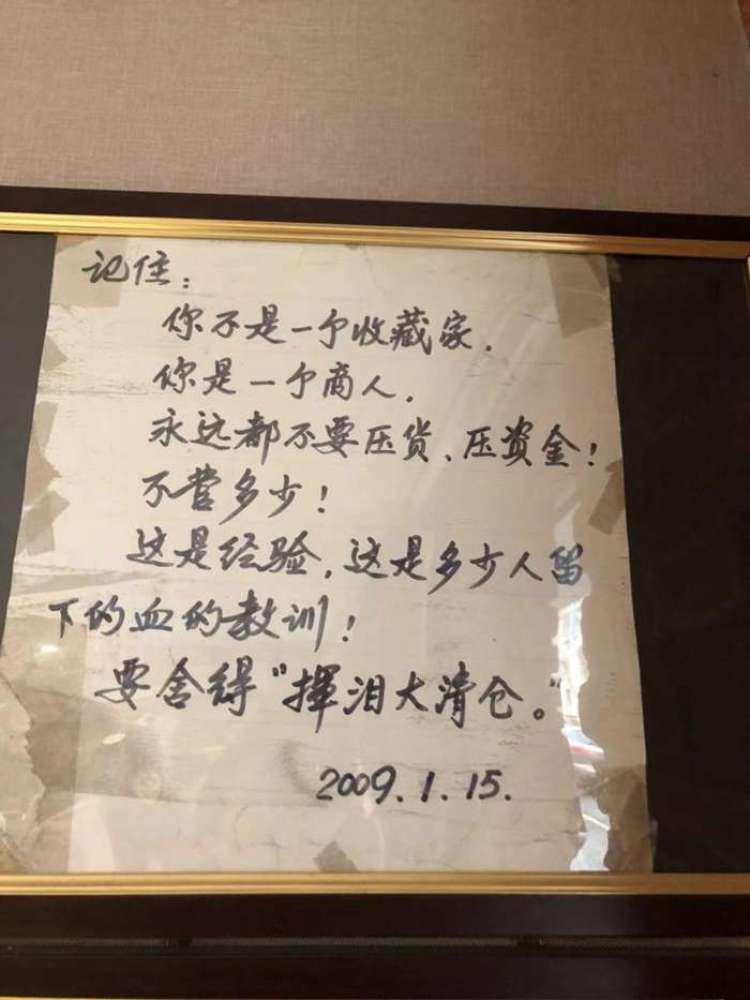 记住：
你不是一个收藏家.
你是一个商人.
永远都不要压货、压资金！
不营多少！
这是经验,这是多少人留
下的血的教训！
要舍得“揮泪大清仓。”
2009.1.15.